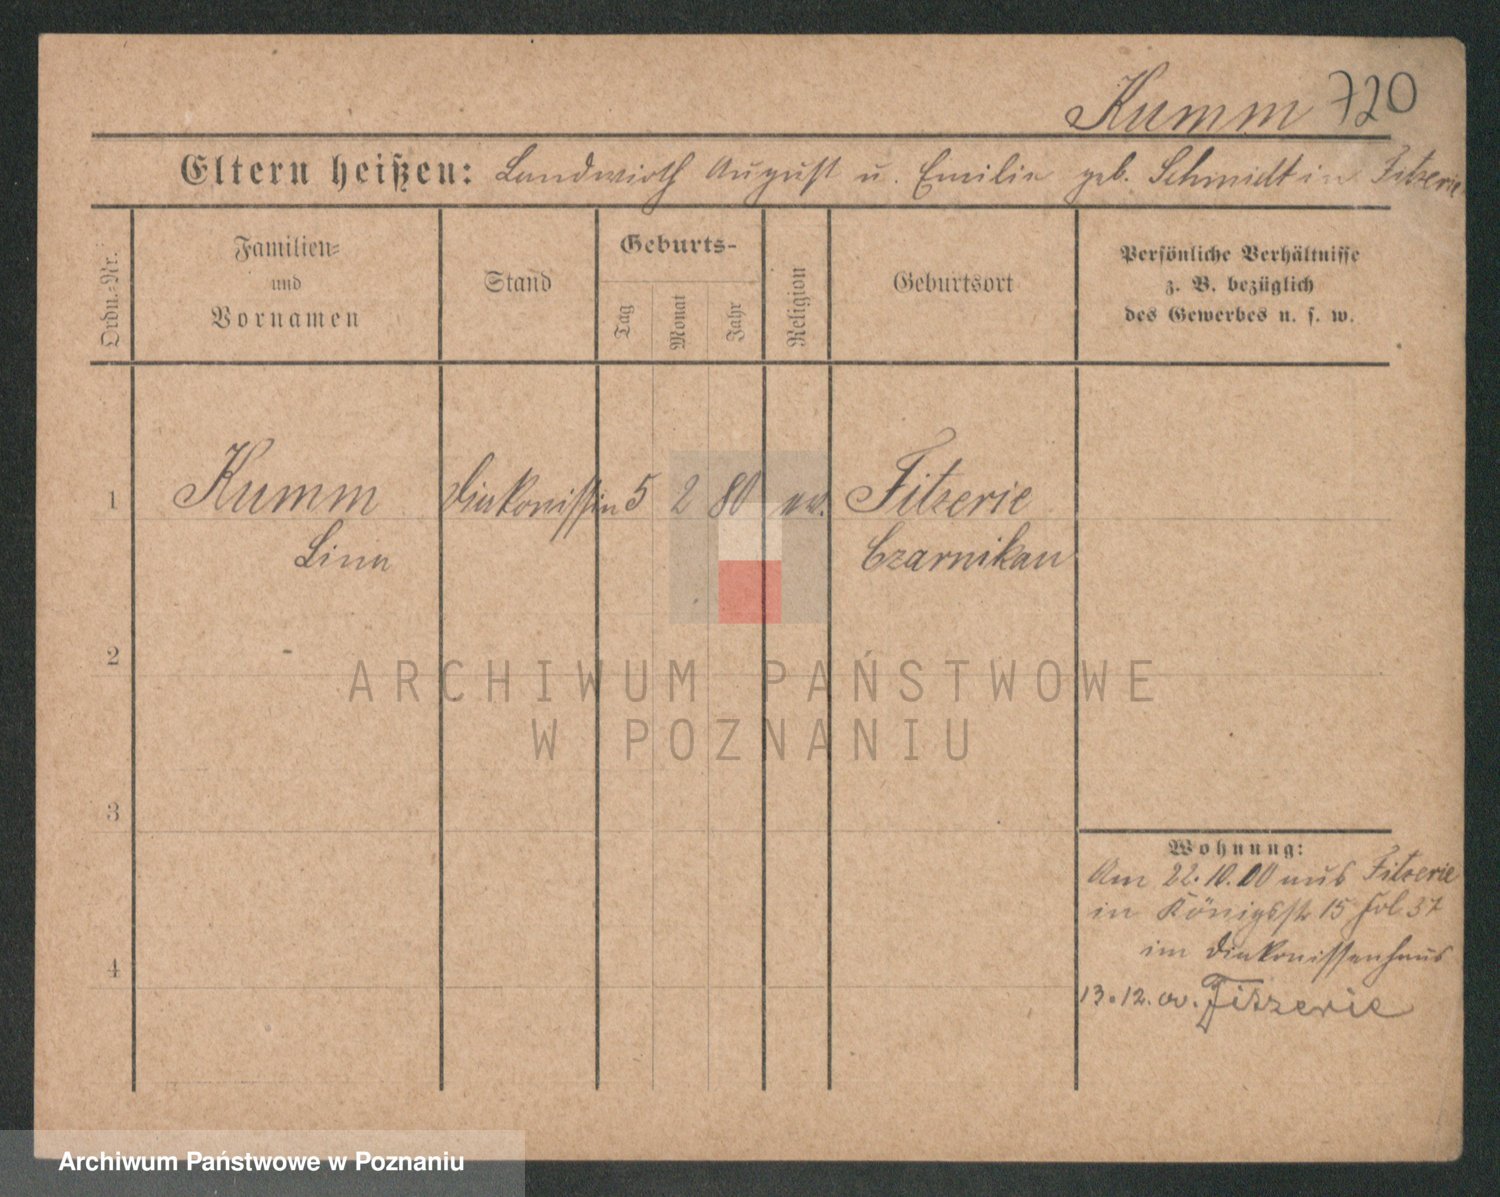 Kumm 720
Eltern heißen: Landwirth August u. Emilie geb. Schmidt in Fitzerie
Ordn.-Nr.
Familien-
und
Vornamen
Stand
Geburts-
Tag
Monat
Jahr
Religion
Geburtsort
Persönliche Verhältnisse
z. B. bezüglich
des Gewerbes u. s. w.
1 Kumm Diakonissin 5 2 80 ev. Fitzerie
Lina Czarnikau
2
ARCHIWUM PAŃSTWOWE
W POZNANIU
3
Wohnung:
Am 22.10.00 aus Fitzerie
in Königsstr 15 fol 37
4
im Diakonissenhaus
13.12.00. Fitzerie
Archiwum Państwowe w Poznaniu